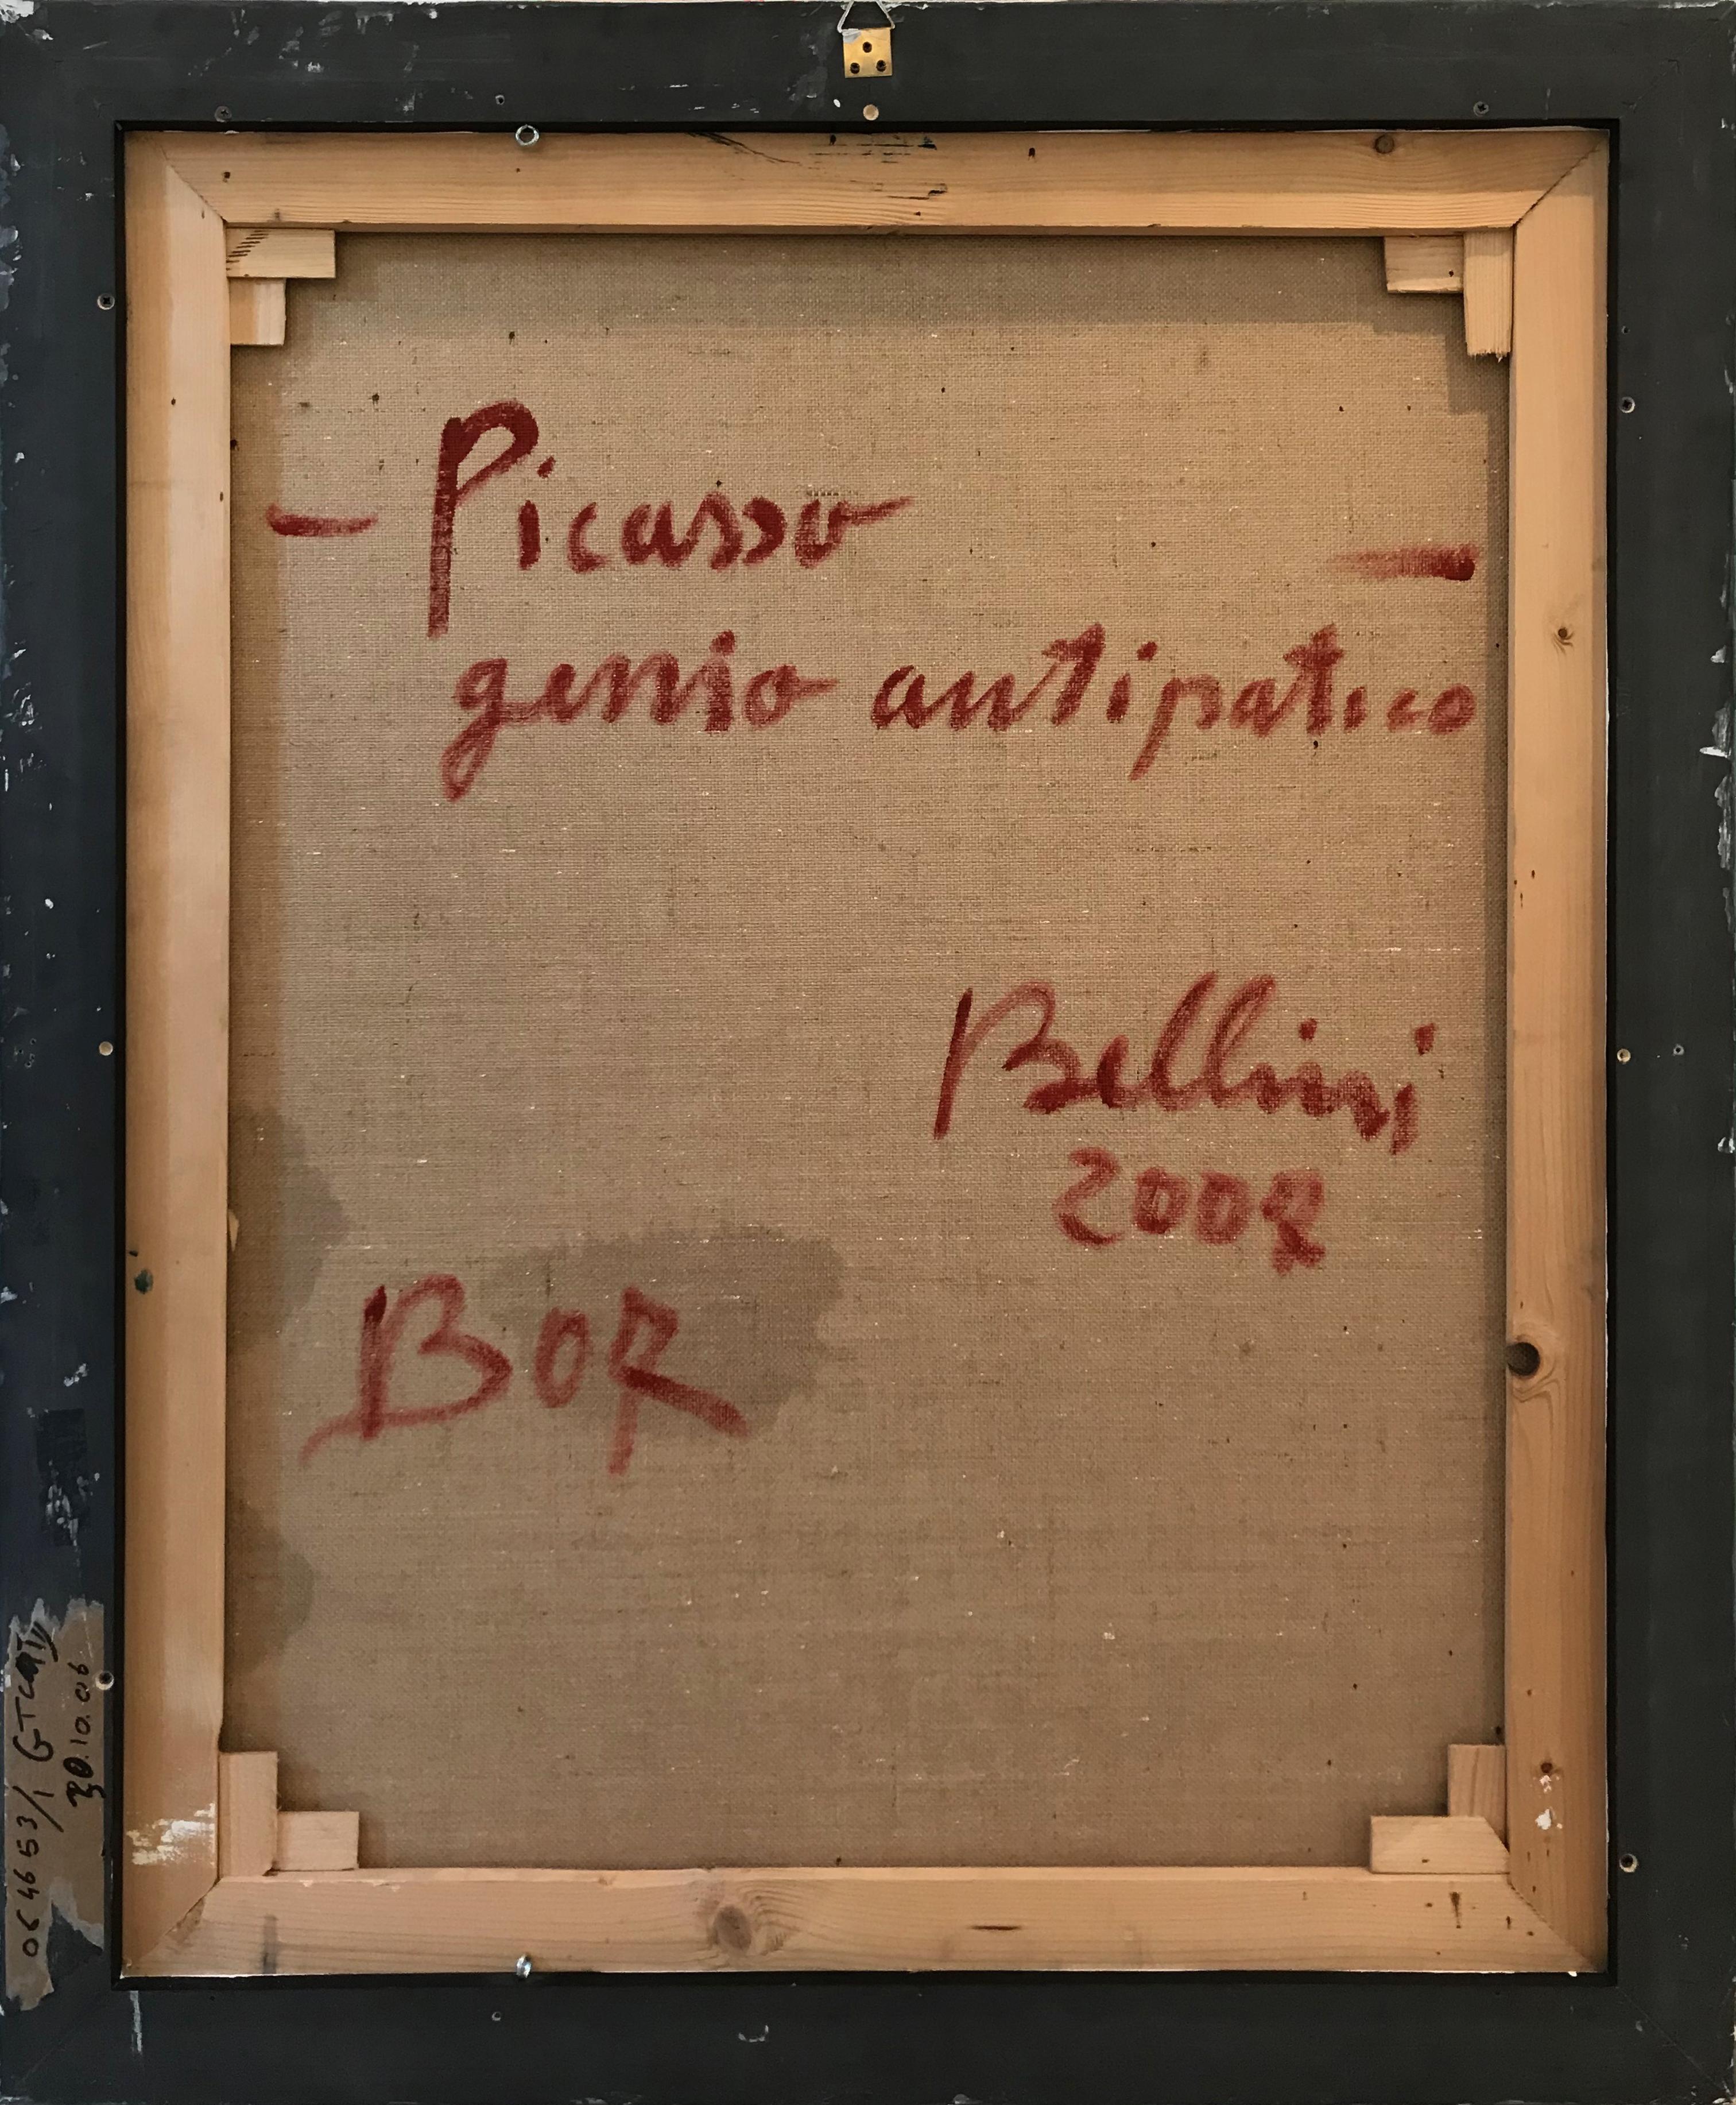 — Picasso —
genio antipatico
Bellini
2002
BOR
064653/1
30.10.06